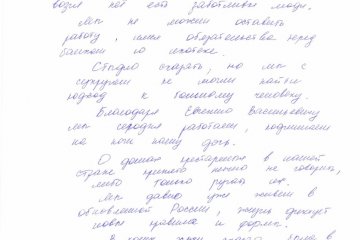 возле неё есть заботливые люди.
Мы не можем оставить
работу, имея обязательства перед
банком по ипотеке.
Стыдно сказать, но мы с
супругом не могли найти
подход к больному человеку.
Благодаря Евгению Васильевичу
мы сегодня работаем, поднимаем
на ноги нашу дочь.
О домах престарелых в нашей
стране принято нежно не говорить,
либо только ругать их.
Мы давно уже живем в
обновленной России, жизнь диктует
новые правила и формы.